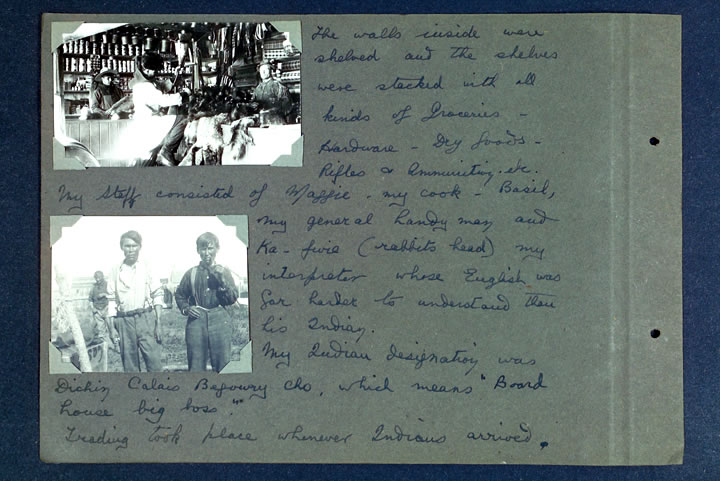 The walls inside were
shelved and the shelves
were stacked with all
kinds of Groceries -
Hardware - Dry Goods -
Rifles & Ammunition. etc.
My Staff consisted of Maggie - my cook - Basil,
my general handy man and
Ka - fwie (rabbits head) my
interpreter whose English was
far harder to understand than
his Indian.
My Indian designation was
Calais cho, which means "Board
house big boss."
Trading took place whenever Indians arrived.